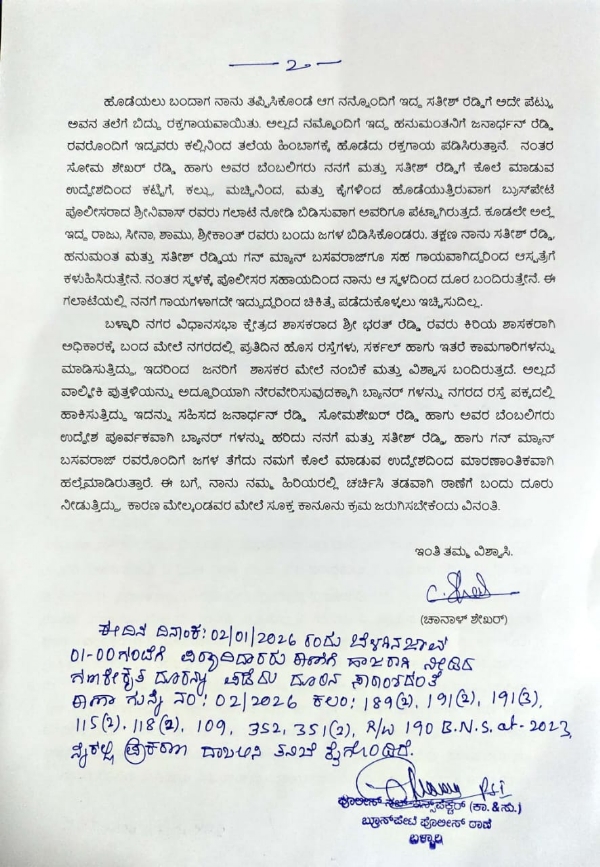 2
ಹೊಡೆಯಲು ಬಂದಾಗ ನಾನು ತಪ್ಪಿಸಿಕೊಂಡೆ ಆಗ ನನ್ನೊಂದಿಗೆ ಇದ್ದ ಸತೀಶ್ ರೆಡ್ಡಿಗೆ ಅದೇ ಪೆಟ್ಟು
ಅವನ ತಲೆಗೆ ಬಿದ್ದು ರಕ್ತಗಾಯವಾಯಿತು. ಅಲ್ಲದೆ ನಮ್ಮೊಂದಿಗೆ ಇದ್ದ ಹನುಮಂತನಿಗೆ ಜನಾರ್ಧನ್ ರೆಡ್ಡಿ
ರವರೊಂದಿಗೆ ಇದ್ದವರು ಕಲ್ಲಿನಿಂದ ತಲೆಯ ಹಿಂಬಾಗಕ್ಕೆ ಹೊಡೆದು ರಕ್ತಗಾಯ ಪಡಿಸಿರುತ್ತಾನೆ. ನಂತರ
ಸೋಮ ಶೇಖರ್ ರೆಡ್ಡಿ ಹಾಗು ಅವರ ಬೆಂಬಲಿಗರು ನನಗೆ ಮತ್ತು ಸತೀಶ್ ರೆಡ್ಡಿಗೆ ಕೊಲೆ ಮಾಡುವ
ಉದ್ದೇಶದಿಂದ ಕಟ್ಟಿಗೆ, ಕಲ್ಲು, ಮಚ್ಚಿನಿಂದ, ಮತ್ತು ಕೈಗಳಿಂದ ಹೊಡೆಯುತ್ತಿರುವಾಗ ಬ್ರುಸ್‌ಪೇಟೆ
ಪೊಲೀಸರಾದ ಶ್ರೀನಿವಾಸ್ ರವರು ಗಲಾಟೆ ನೋಡಿ ಬಿಡಿಸುವಾಗ ಅವರಿಗೂ ಪೆಟ್ಟಾಗಿರುತ್ತದೆ. ಕೂಡಲೇ ಅಲ್ಲೆ
ಇದ್ದ ರಾಜು, ಸೀನಾ, ಶಾಮು, ಶ್ರೀಕಾಂತ್ ರವರು ಬಂದು ಜಗಳ ಬಿಡಿಸಿಕೊಂಡರು. ತಕ್ಷಣ ನಾನು ಸತೀಶ್ ರೆಡ್ಡಿ,
ಹನುಮಂತ ಮತ್ತು ಸತೀಶ್ ರೆಡ್ಡಿಯ ಗನ್ ಮ್ಯಾನ್ ಬಸವರಾಜ್‌ಗೂ ಸಹ ಗಾಯವಾಗಿದ್ದರಿಂದ ಆಸ್ಪತ್ರೆಗೆ
ಕಳುಹಿಸಿರುತ್ತೇನೆ. ನಂತರ ಸ್ಥಳಕ್ಕೆ ಪೊಲೀಸರ ಸಹಾಯದಿಂದ ನಾನು ಆ ಸ್ಥಳದಿಂದ ದೂರ ಬಂದಿರುತ್ತೇನೆ. ಈ
ಗಲಾಟೆಯಲ್ಲಿ ನನಗೆ ಗಾಯಗಳಾಗದೇ ಇದ್ದುದ್ದರಿಂದ ಚಿಕಿತ್ಸೆ ಪಡೆದುಕೊಳ್ಳಲು ಇಚ್ಚಿಸುದಿಲ್ಲ.
ಬಳ್ಳಾರಿ ನಗರ ವಿಧಾನಸಭಾ ಕ್ಷೇತ್ರದ ಶಾಸಕರಾದ ಶ್ರೀ ಭರತ್ ರೆಡ್ಡಿ ರವರು ಕಿರಿಯ ಶಾಸಕರಾಗಿ
ಅಧಿಕಾರಕ್ಕೆ ಬಂದ ಮೇಲೆ ನಗರದಲ್ಲಿ ಪ್ರತಿದಿನ ಹೊಸ ರಸ್ತೆಗಳು, ಸರ್ಕಲ್ ಹಾಗು ಇತರೆ ಕಾಮಗಾರಿಗಳನ್ನು
ಮಾಡಿಸುತ್ತಿದ್ದು, ಇದರಿಂದ ಜನರಿಗೆ ಶಾಸಕರ ಮೇಲೆ ನಂಬಿಕೆ ಮತ್ತು ವಿಶ್ವಾಸ ಬಂದಿರುತ್ತದೆ. ಅಲ್ಲದೆ
ವಾಲ್ಮೀಕಿ ಪುತ್ಥಳಿಯನ್ನು ಅದ್ದೂರಿಯಾಗಿ ನೇರವೇರಿಸುವುದಕ್ಕಾಗಿ ಬ್ಯಾನರ್ ಗಳನ್ನು ನಗರದ ರಸ್ತೆ ಪಕ್ಕದಲ್ಲಿ
ಹಾಕಿಸುತ್ತಿದ್ದು ಇದನ್ನು ಸಹಿಸದ ಜನಾರ್ಧನ್ ರೆಡ್ಡಿ ಸೋಮಶೇಖರ್ ರೆಡ್ಡಿ ಹಾಗು ಅವರ ಬೆಂಬಲಿಗರು
ಉದ್ದೇಶ ಪೂರ್ವಕವಾಗಿ ಬ್ಯಾನರ್ ಗಳನ್ನು ಹರಿದು ನನಗೆ ಮತ್ತು ಸತೀಶ್ ರೆಡ್ಡಿ, ಹಾಗು ಗನ್ ಮ್ಯಾನ್
ಬಸವರಾಜ್ ರವರೊಂದಿಗೆ ಜಗಳ ತೆಗೆದು ನಮಗೆ ಕೊಲೆ ಮಾಡುವ ಉದ್ದೇಶದಿಂದ ಮಾರಣಾಂತಿಕವಾಗಿ
ಹಲ್ಲೆಮಾಡಿರುತ್ತಾರೆ. ಈ ಬಗ್ಗೆ ನಾನು ನಮ್ಮ ಹಿರಿಯರಲ್ಲಿ ಚರ್ಚಿಸಿ ತಡವಾಗಿ ಠಾಣೆಗೆ ಬಂದು ದೂರು
ನೀಡುತ್ತಿದ್ದು, ಕಾರಣ ಮೇಲ್ಕಂಡವರ ಮೇಲೆ ಸೂಕ್ತ ಕಾನೂನು ಕ್ರಮ ಜರುಗಿಸಬೇಕೆಂದು ವಿನಂತಿ.
ಇಂತಿ ತಮ್ಮ ವಿಶ್ವಾಸಿ.
(ಚಾನಾಳ್ ಶೇಖರ್)
ಈದಿನ ದಿನಾಂಕ: 02/01/2026 ರಂದು ಬೆಳಗಿನಜಾವ
01-00 ಗಂಟೆಗೆ ಪಿರ್ಯಾದಿದಾರರು ಠಾಣೆಗೆ ಹಾಜರಾಗಿ ನೀಡಿದ
ಗಣಕೀಕೃತ ದೂರನ್ನು ಪಡೆದು ದೂರಿನ ಸಾರಾಂಶದಂತೆ
ಠಾಣಾ ಗುನ್ನೆ ನಂ: 02/2026 ಕಲಂ: 189(2), 191(2), 191(3),
115(2), 118(2), 109, 352, 351(2), R/W 190 B.N.S. act-2023
ಪ್ರಕರಣ ದಾಖಲಿಸಿ ತನಿಖೆ ಕೈಗೊಂಡಿದೆ.
PSI
ಪೊಲೀಸ್ ಸಬ್ ಇನ್ಸ್‌ಪೆಕ್ಟರ್ (ಕಾ.&ಸು.)
ಬ್ರೂಸ್‌ಪೇಟೆ ಪೊಲೀಸ್ ಠಾಣೆ
ಬಳ್ಳಾರಿ